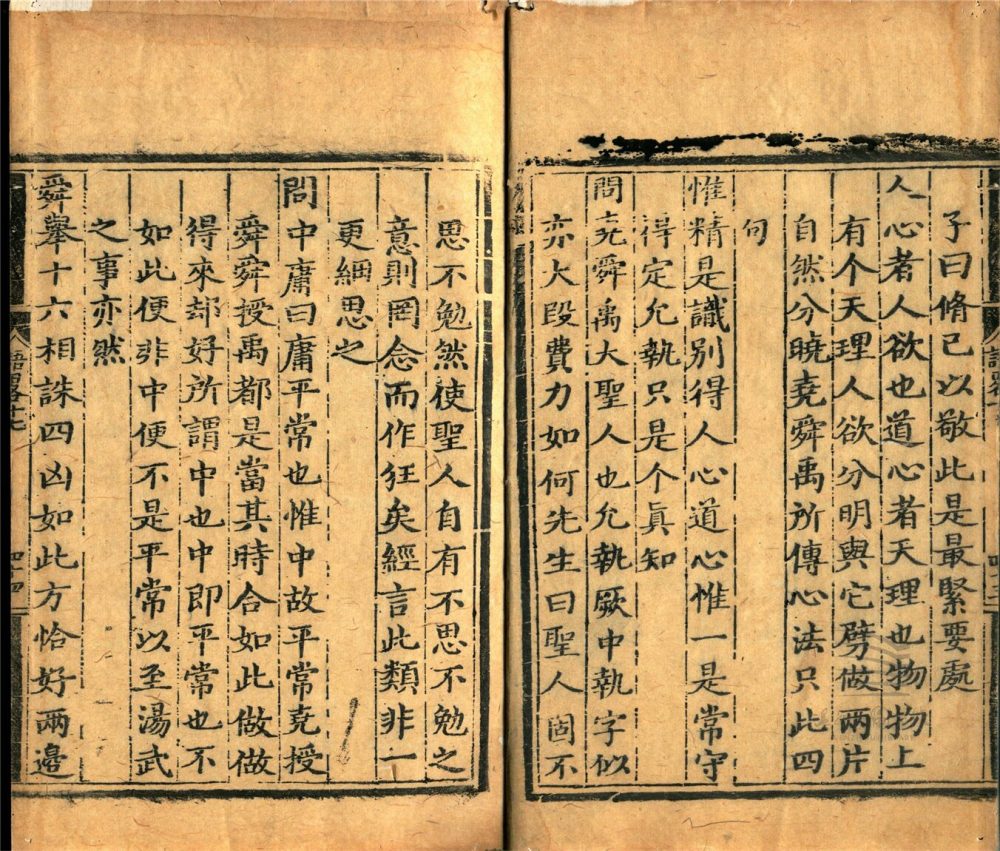 子曰脩己以敬此是最緊要處
人心者人欲也道心者天理也物物上
有个天理人欲分明與它劈做兩片
自然分曉堯舜禹所傳心法只此四
句
惟精是識別得人心道心惟一是常守
得定允執只是个眞知
問堯舜禹大聖人也允執厥中執字似
亦大段費力如何先生曰聖人固不
思不勉然使聖人自有不思不勉之
意則罔念而作狂矣經言此類非一
更細思之
問中庸曰庸平常也惟中故平常堯授
舜舜授禹都是當其時合如此做做
得來却好所謂中也中即平常也不
如此便非中便不是平常以至湯武
之事亦然
舜舉十六相誅四凶如此方恰好兩邉